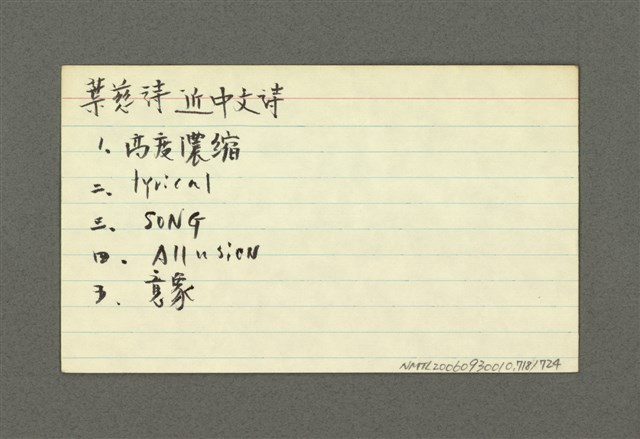 葉慈詩 近中文詩
1、高度濃縮
二、lyrical
三、SONG
四、Allusion
五、意象
NMTL20060930010,718/724